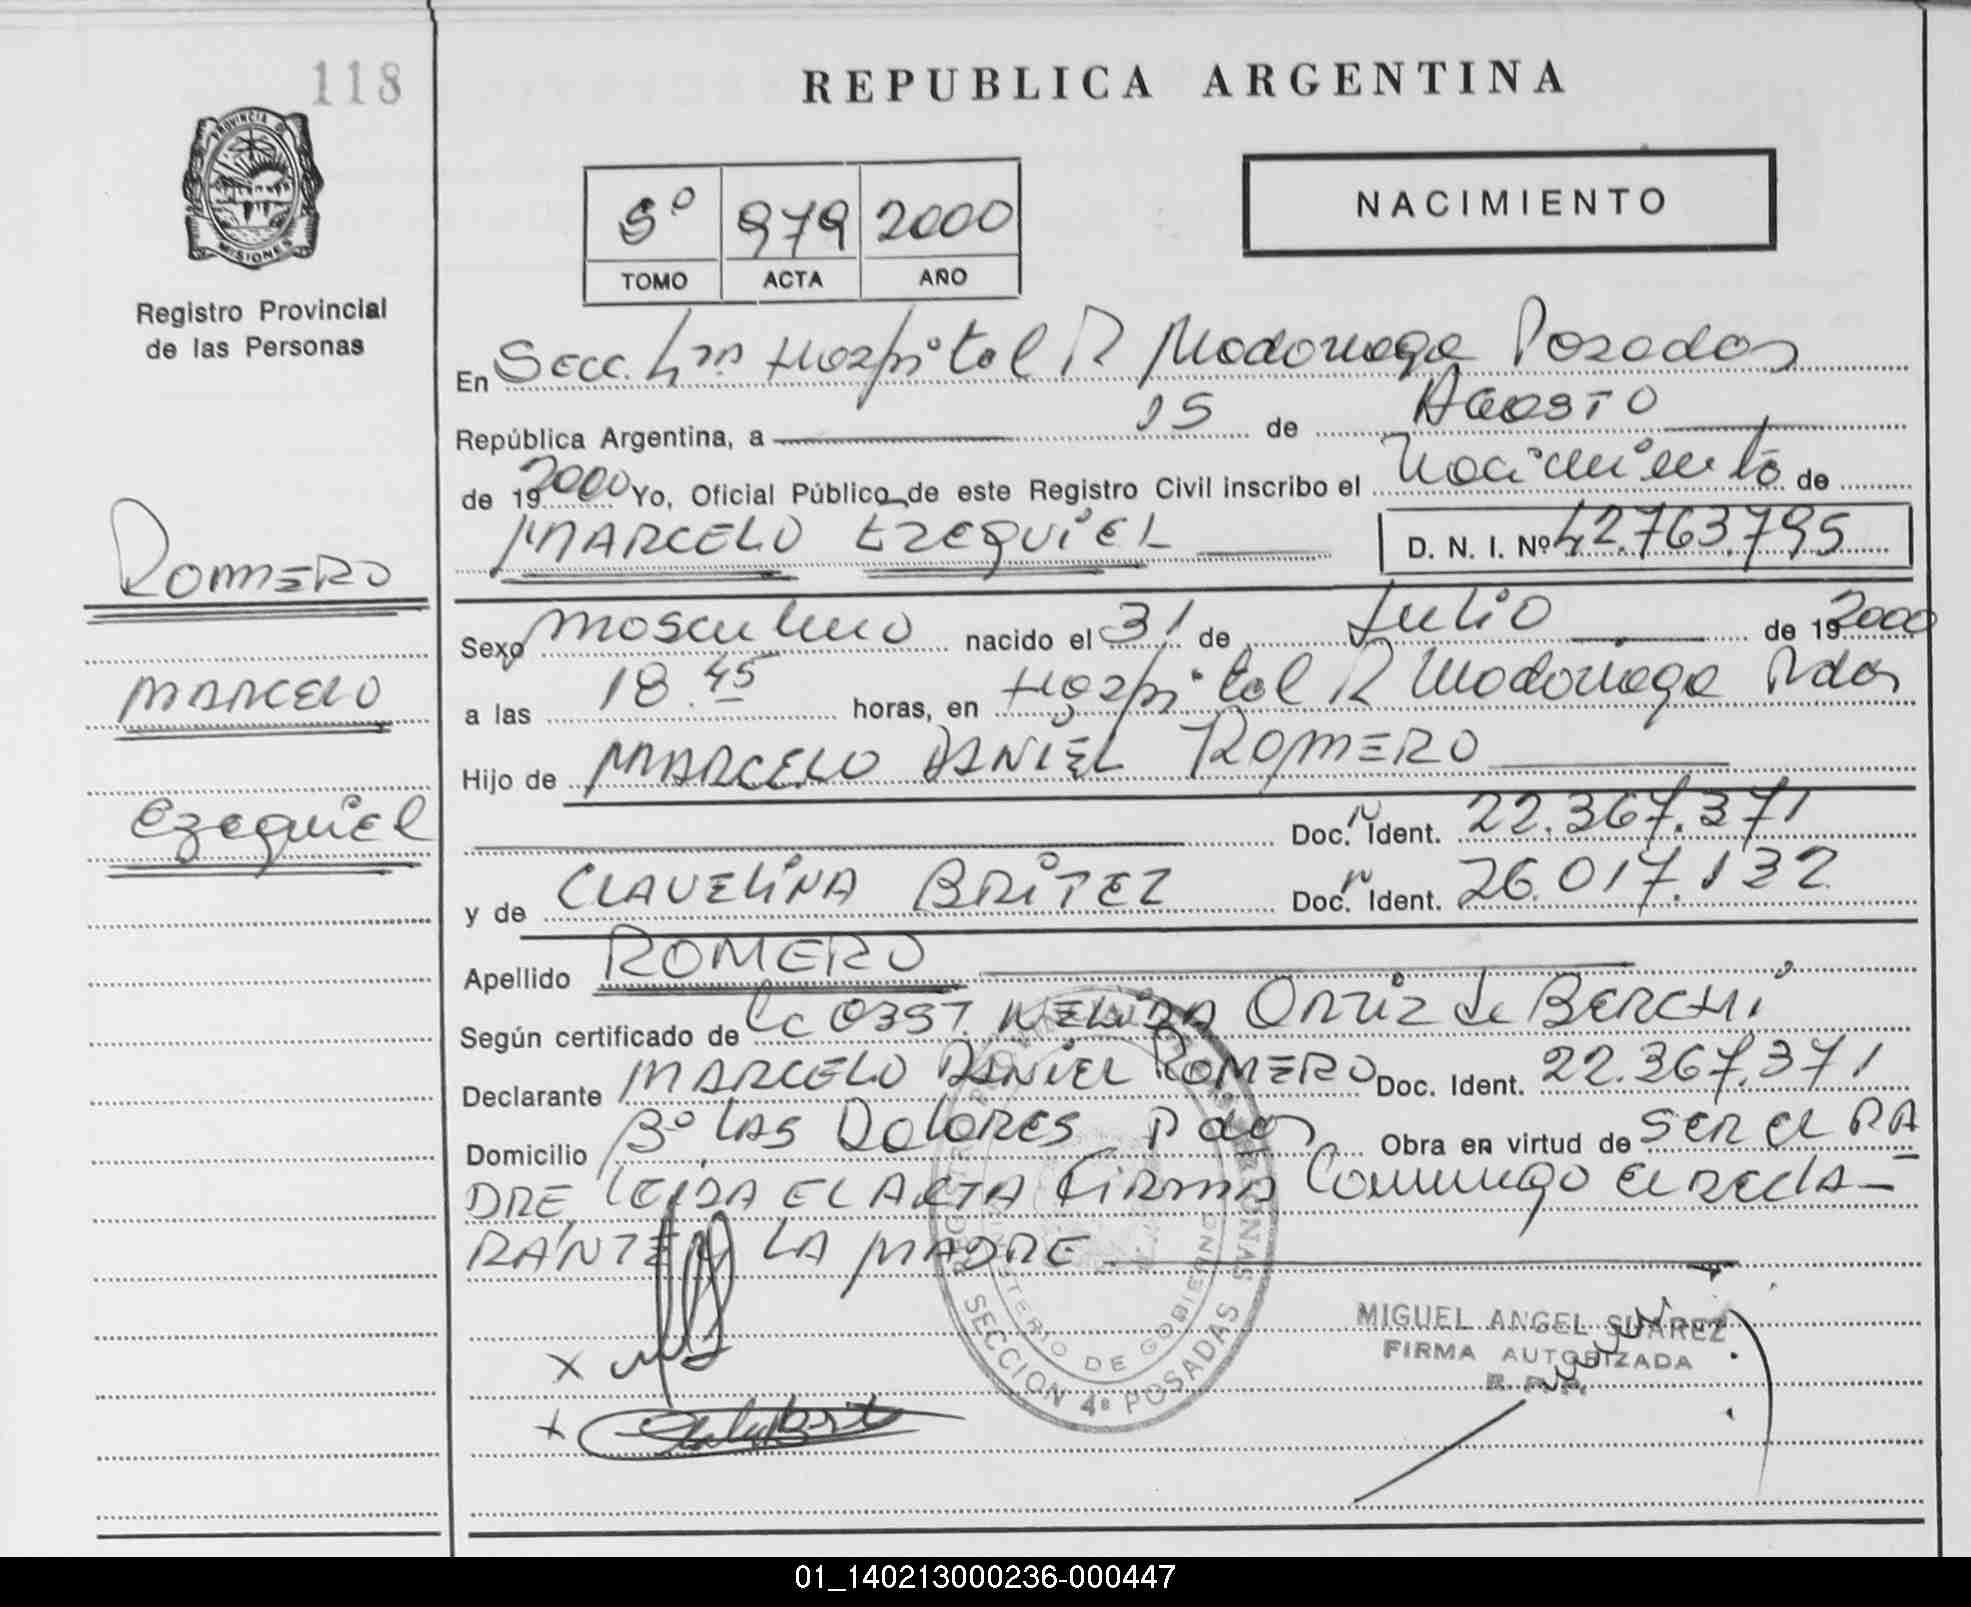 118
REPUBLICA ARGENTINA
PROVINCIA DE
MISIONES
Registro Provincial
de las Personas
5º 979 2000
TOMO ACTA AÑO
NACIMIENTO
En Secc. 4ta Hospital R Madariaga Posadas
República Argentina, a 15 de Agosto
de 19 2000 Yo, Oficial Público de este Registro Civil inscribo el Nacimiento de
MARCELO EZEQUIEL D. N. I. Nº 42.763.795
ROMERO
MARCELO
Ezequiel
Sexo masculino nacido el 31 de Julio de 19 2000
a las 18.45 horas, en Hospital R Madariaga Pdas
Hijo de MARCELO DANIEL ROMERO
Doc. N Ident. 22.367.371
y de CLAVELINA BRITEZ Doc. N Ident. 26.017.132
Apellido ROMERO
Según certificado de Lc OBST. NELIDA Ortiz de BERCHI
Declarante MARCELO DANIEL ROMERO Doc. Ident. 22.367.371
Domicilio Bº LAS DOLORES Pdas Obra en virtud de SER EL PA
DRE LEIDA EL ACTA FIRMA Conmigo el DECLA-
RANTE LA MADRE
MINISTERIO DE GOBIERNO
SECCION 4ª POSADAS
MIGUEL ANGEL SUAREZ
FIRMA AUTORIZADA
R. P. P.
X
+
01_140213000236-000447